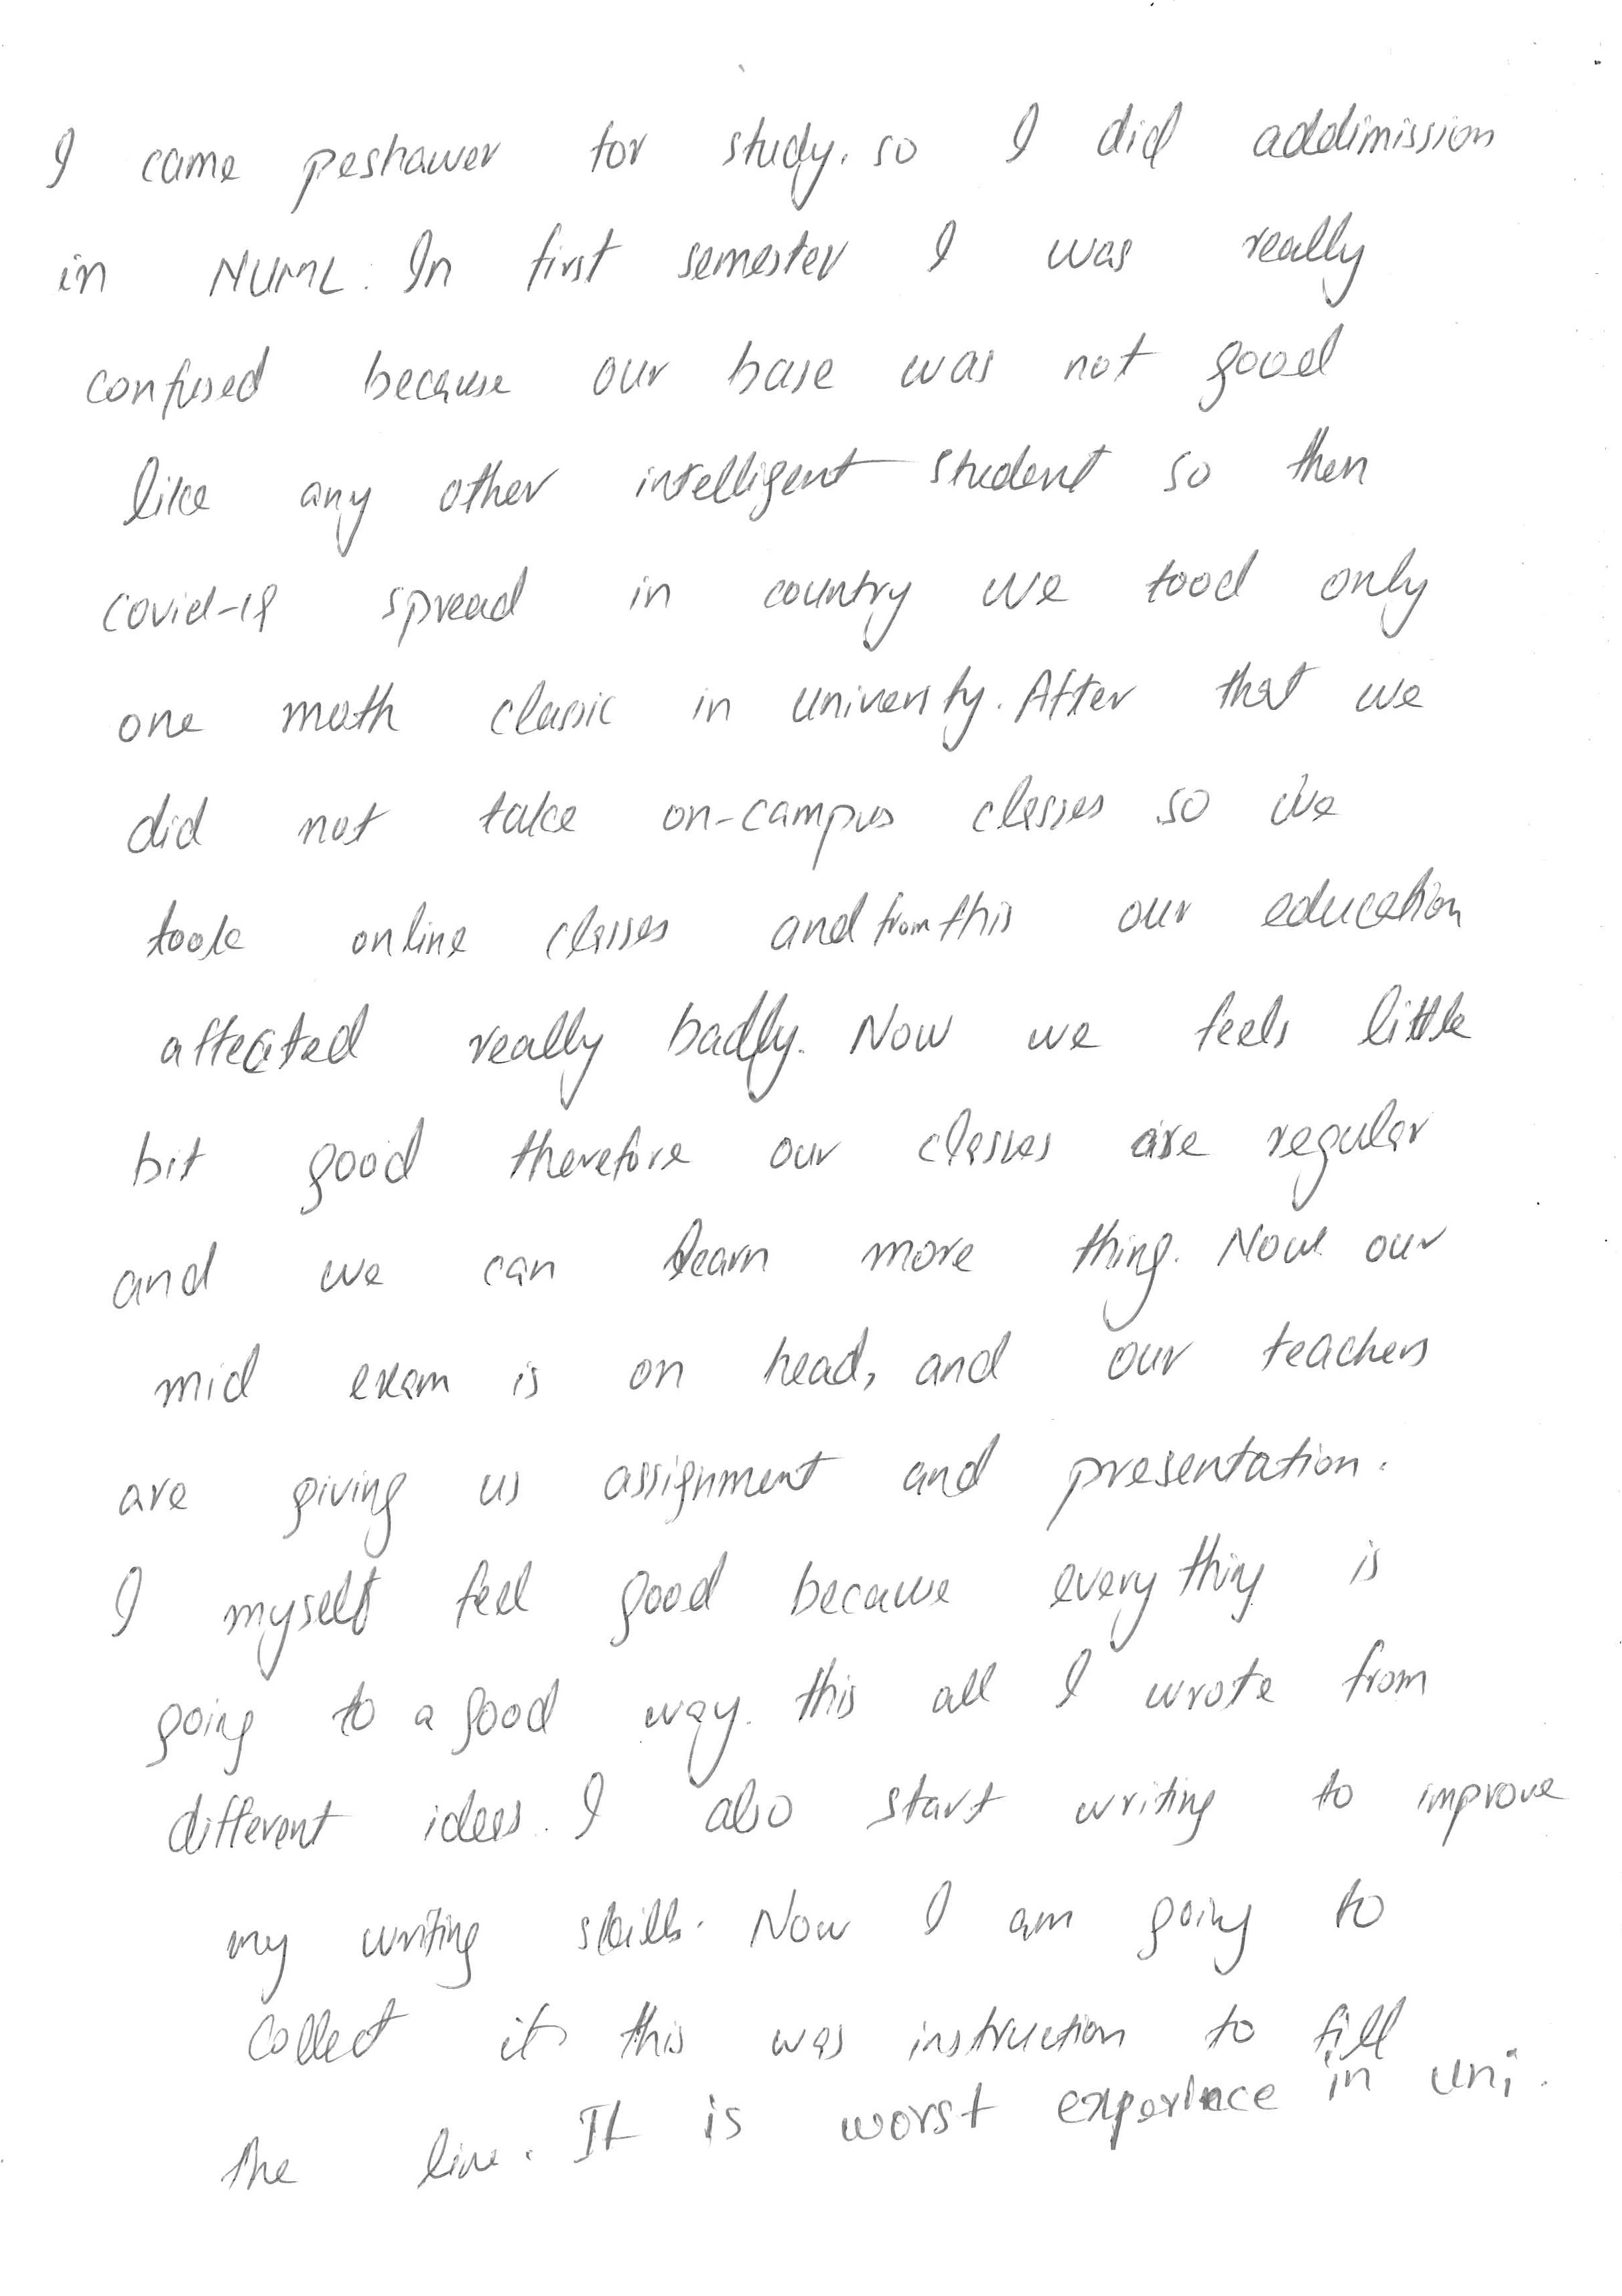 I came peshawer for study. so I did addimission
in NUML. In first semester I was really
confused because our base was not good
like any other intelligent student so then
covid-19 spread in country we tood only
one moth classic in university. After that we
did not take on-campus classes so we
took online classes and from this our education
affected really badly. Now we feels little
bit good therefore our classes are regular
and we can learn more thing. Now our
mid exam is on head, and our teachers
are giving us assignment and presentation.
I myself feel good because every thing is
going to a good way. this all I wrote from
different idees. I also start writing to improve
my writing skills. Now I am going to
collect it this was instruction to fill
the line. It is worst experince in uni.